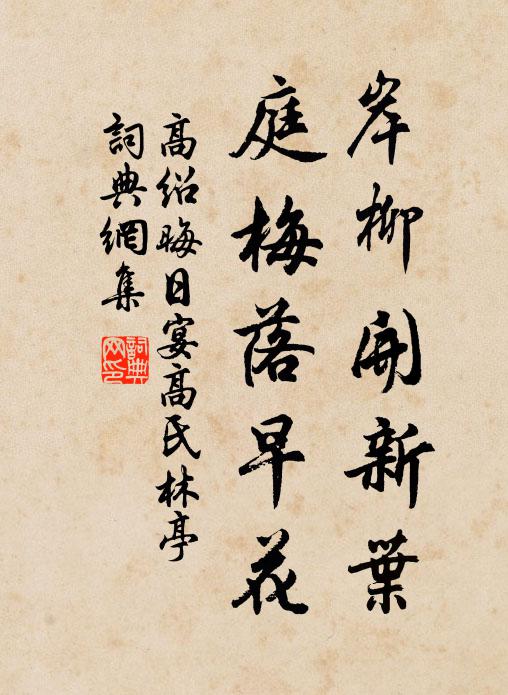 岸柳開新葉
庭梅落早花
高紹晦日宴高氏林亭
詞典網集
詞典网印